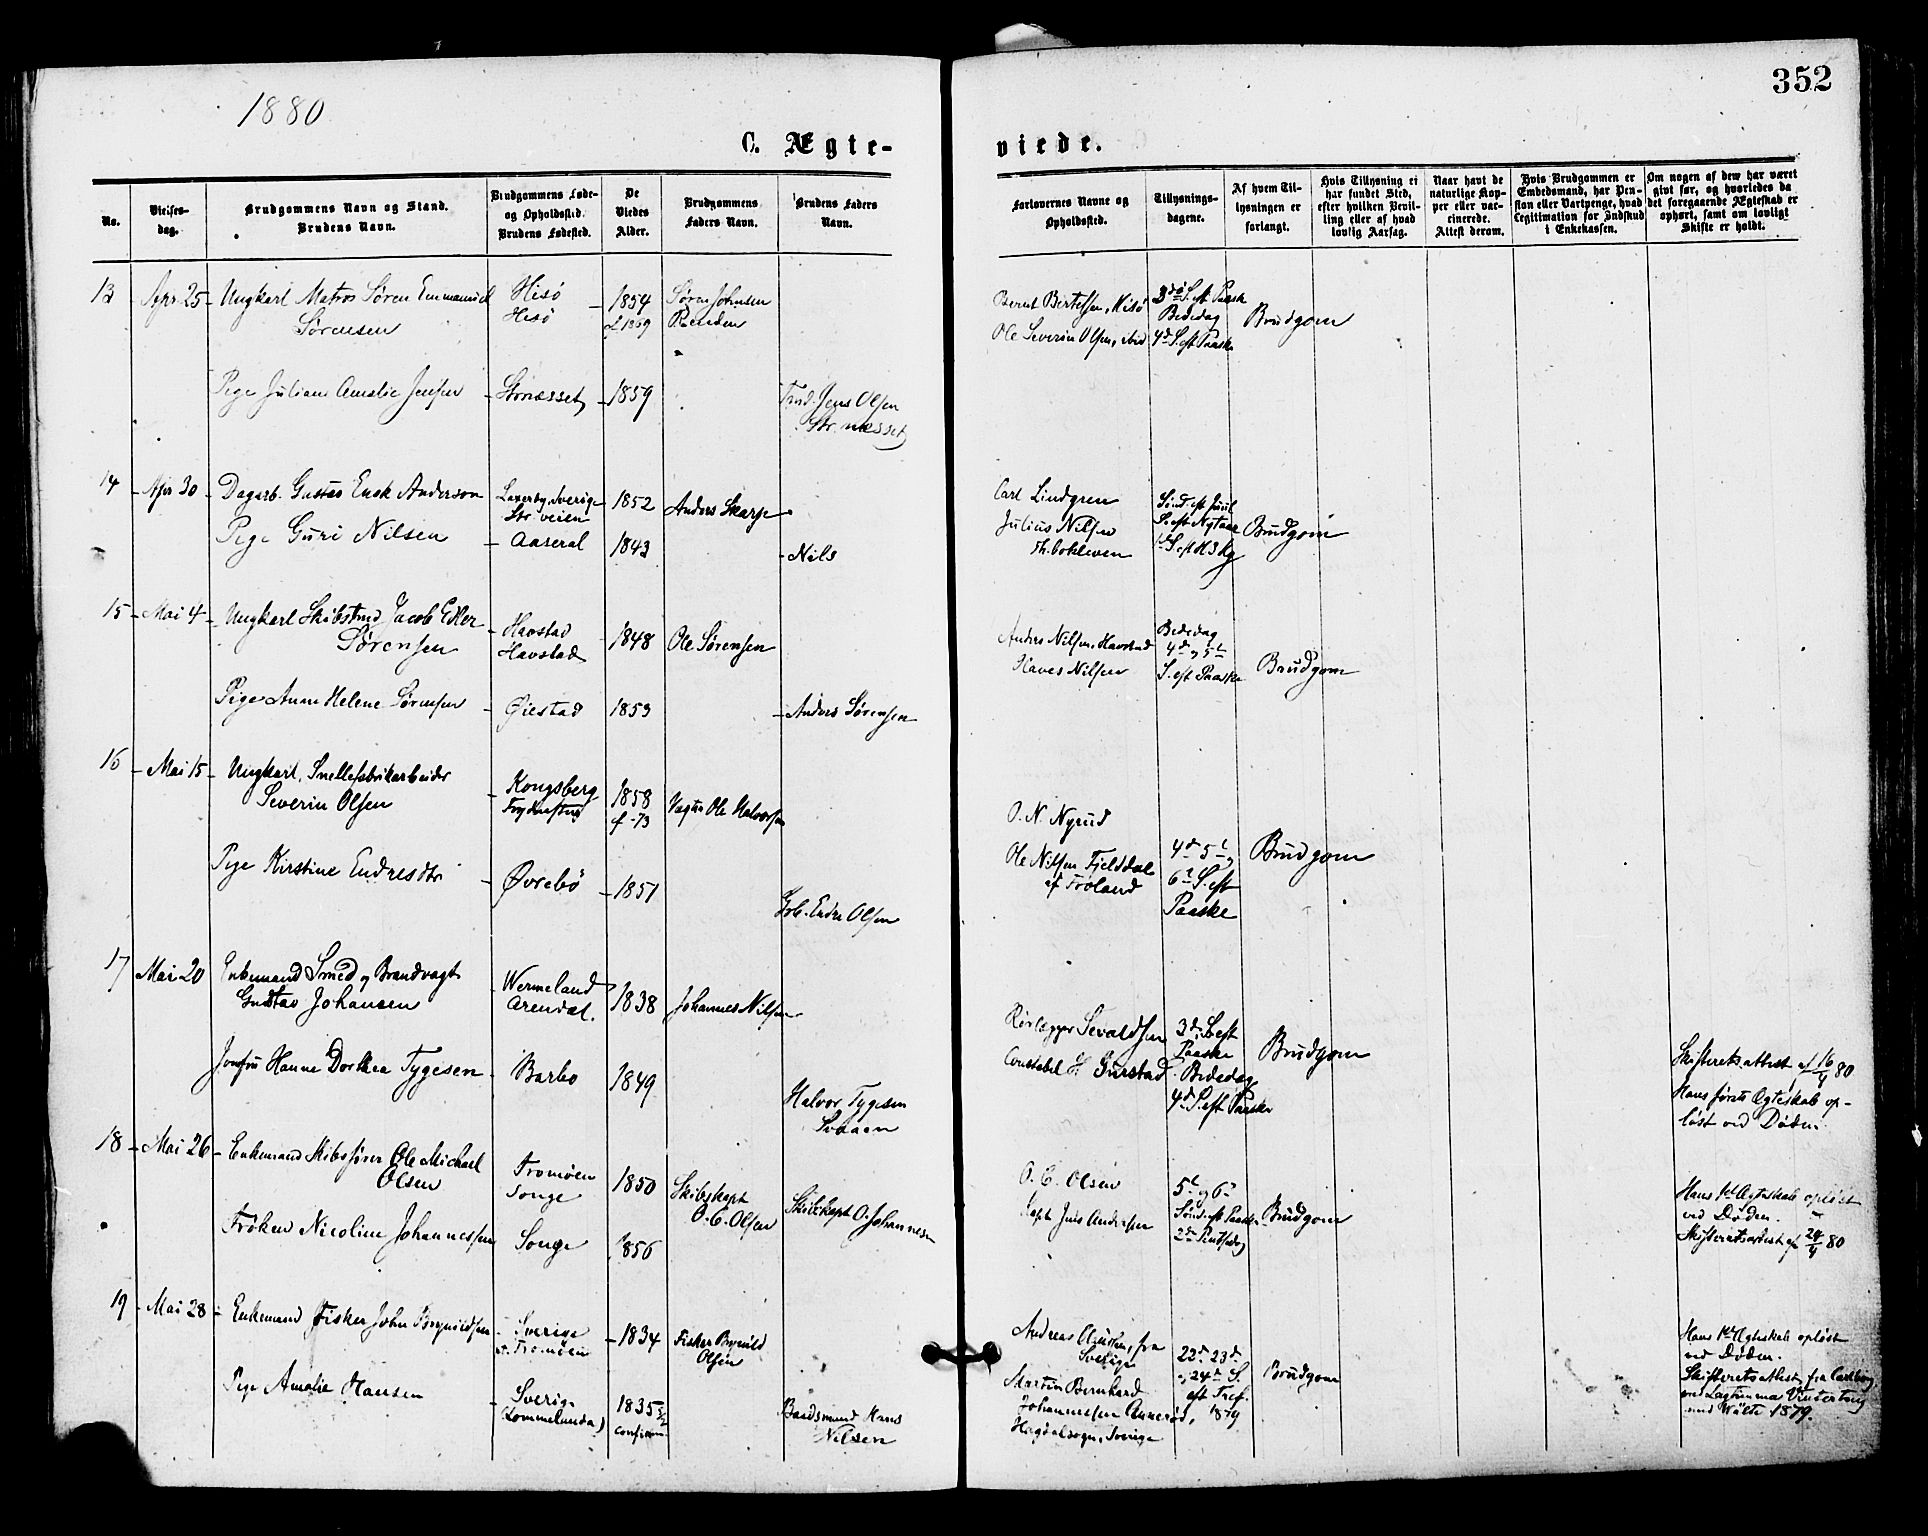 352
1880
C. Ægte-
viede.
No.
Vielses-
dag.
Brudgommens Navn og Stand.
Brudens Navn.
Brudgommens Føde-
og Opholdssted.
Brudens Fødested.
De
Viedes
Alder.
Brudgommens
Faders Navn.
Brudens Faders
Navn.
Forlovernes Navne og
Opholdssted.
Tillysnings-
dagene.
Af hvem Til-
lysningen er
forlangt.
Hvis Tillysning ei
har fundet Sted,
efter hvilken Bevil-
ling eller af hvad
lovlig Aarsag.
Naar havt de
naturlige Kop-
per eller vac-
cinerede.
Attest derom.
Hvis Brudgommen er
Embedsmand, har Pen-
sion eller Vartpenge, hvad
Legitimation for Indskud
i Enkekassen.
Om nogen af dem har været
givt før, og hvorledes da
det foregaaende Ægteskab er
ophørt, samt om lovligt
Skifte er holdt.
13 Apr 25 Ungkarl Matros Søren Emmanuel
Sørensen
Hisø
Hisø
1854
Søren Johnsen
Bernt Bertelsen, Hisø
Ole Severin Olsen, ibid
3die S. eft Paaske
Bededag
4de S. eft Paaske
Brudgom
Pige Juliane Amalie Jensen
Strnæsset
1859
Jens Olsen
Str. næsset
14 Apr 30 Dagarb. Gustav Ensk Anderson
Sverige
Str veien
1852
Anders Skarp
Carl Lindgren
Julius Nilsen
Sønd. eft Juul
S. eft Nytaar
1ste S. eft H3kg
Brudgom
Pige Guri Nilsen
Aaseral
1843
Nils
15 Mai 4 Ungkarl Skibstmd Jacob Edler
Sørensen
Havstad
Havstad
1848
Ole Sørensen
Anders Nilsen, Havstad
Haves Nilsen
Bededag
4de og 5te
S. eft Paaske
Brudgom
Pige Anne Helene Sørensen
Øiestad
1853
Anders Sørensen
16 Mai 15 Ungkarl, Snellefabrikarbeider
Severin Olsen
Kongsberg
1858
f -73
Vagter Ole Halvorsen
O. N. Nyrud
Ole Nilsen Fjelddal
af Froland
4de 5te og
6te S. eft
Paaske
Brudgom
Pige Kirstine Endresdtr
Øvrebø
1851
Endre Olsen
17 Mai 20 Enkemand Smed og Brandvagt
Gustav Johansen
Wermeland
Arendal.
1838
Johannes Nilsen
Rørlægger Sevaldsen
Constabel H. Gurstad
3die S. eft
Paaske
Bededag
4de S. eft Paaske
Brudgom
Skifteretsattest af 16/4 80
Hans første Ægteskab op-
løst ved Døden.
Jomfru Hanne Dorthea Tygesen
Barbo
1849
Halvor Tygesen
18 Mai 26 Enkemand Skibsfører Ole Michael
Olsen
Tromøen
Songe
1850
Skibskapt
O. C. Olsen
O. C. Olsen
Kapt Jens Andersen
5te og 6te
Sønd. eft Paaske
2den Pintsedag
Brudgom
Hans 1ste Ægteskab opløst
ved Døden.
Skifteretsattest af 24/4 80
Frøken Nicoline Johannessen
Songe
1856
Skibskapt O. Johannesen
19 Mai 28 Enkemand Fisker John Brynildsen
Sverige
Tromøen
1834
Fisker Brynild
Olsen
Andreas
fra
Sverige
Martin Bernhard
Johannessen
Sverige
22de 23de
og 24de S.
eft Tref.
1879
Brudgom
Hans 1ste Ægteskab opløst
ved Døden.
Skifteretsattest fra
1879.
Pige Amalie Hansen
Sverige
1835
confirm
Baadsmand Hans
Nilsen